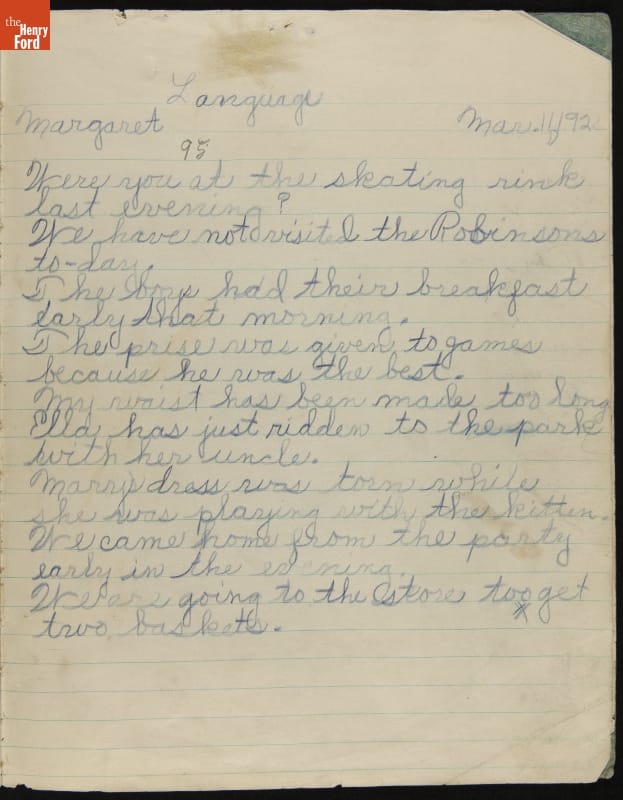 the
Henry
Ford
Language
Margaret
95
Were you at the skating rink
last evening?
We have not visited the Robinsons
to-day.
The boys had their breakfast
early that morning.
The prise was given to games
because he was the best.
My waist has been made too long
Ella has just ridden to the park
with her uncle.
Marry's dress was torn while
she was playing with the kitten.
We came home from the party
early in the evening.
We are going to the store too get
two baskets.